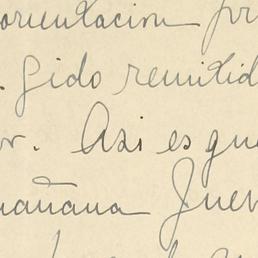 orientacion pr
. Sido remitid
or. Asi es que
mañana Juev